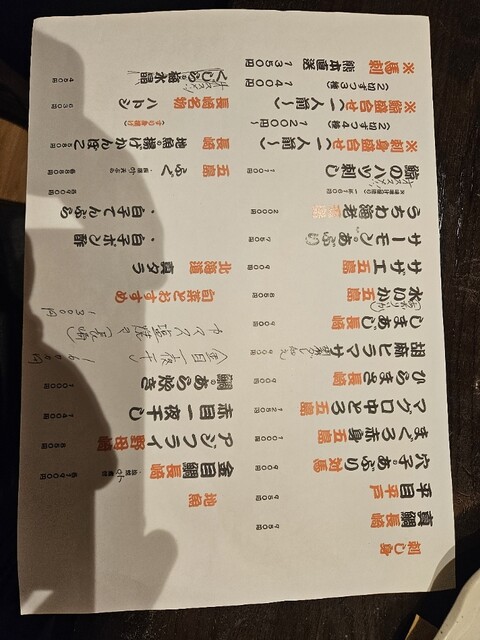 刺し身
真鯛 長崎 950円
平目 平戸 950円
穴子あぶり 対馬 900円
まぐろ赤身 五島 1000円
マグロ中とろ 五島 1250円
ひらまさ 長崎 900円
胡麻ヒラマサ 900円
しまあじ 長崎 900円
水いか 五島 850円
サザエ 五島 900円
サーモンあぶり 750円
うちわ海老 五島 2000円
鯨のハツ刺し 1100円
※刺身盛合せ(一人前〜)
(2切ずつ4種) 1200円〜
※鯨盛合せ(一人前〜)
(2切ずつ3種) 1400円
※馬刺 熊本直送 1350円
地魚
金目鯛 長崎 各1900円
アジフライ 野母崎 850円
赤目一夜干し 1400円
鯛あら焼き 1000円
金目一夜干し
1300円
旬菜とおすすめ
北海道 真タラ
・白子ポン酢
・白子てんぷら
五島 ふぐ 各880円
長崎 地魚の揚げかんぼこ 580円
長崎名物 ハトシ 630円
(すり身揚げ)
くじらの塩水晶 480円